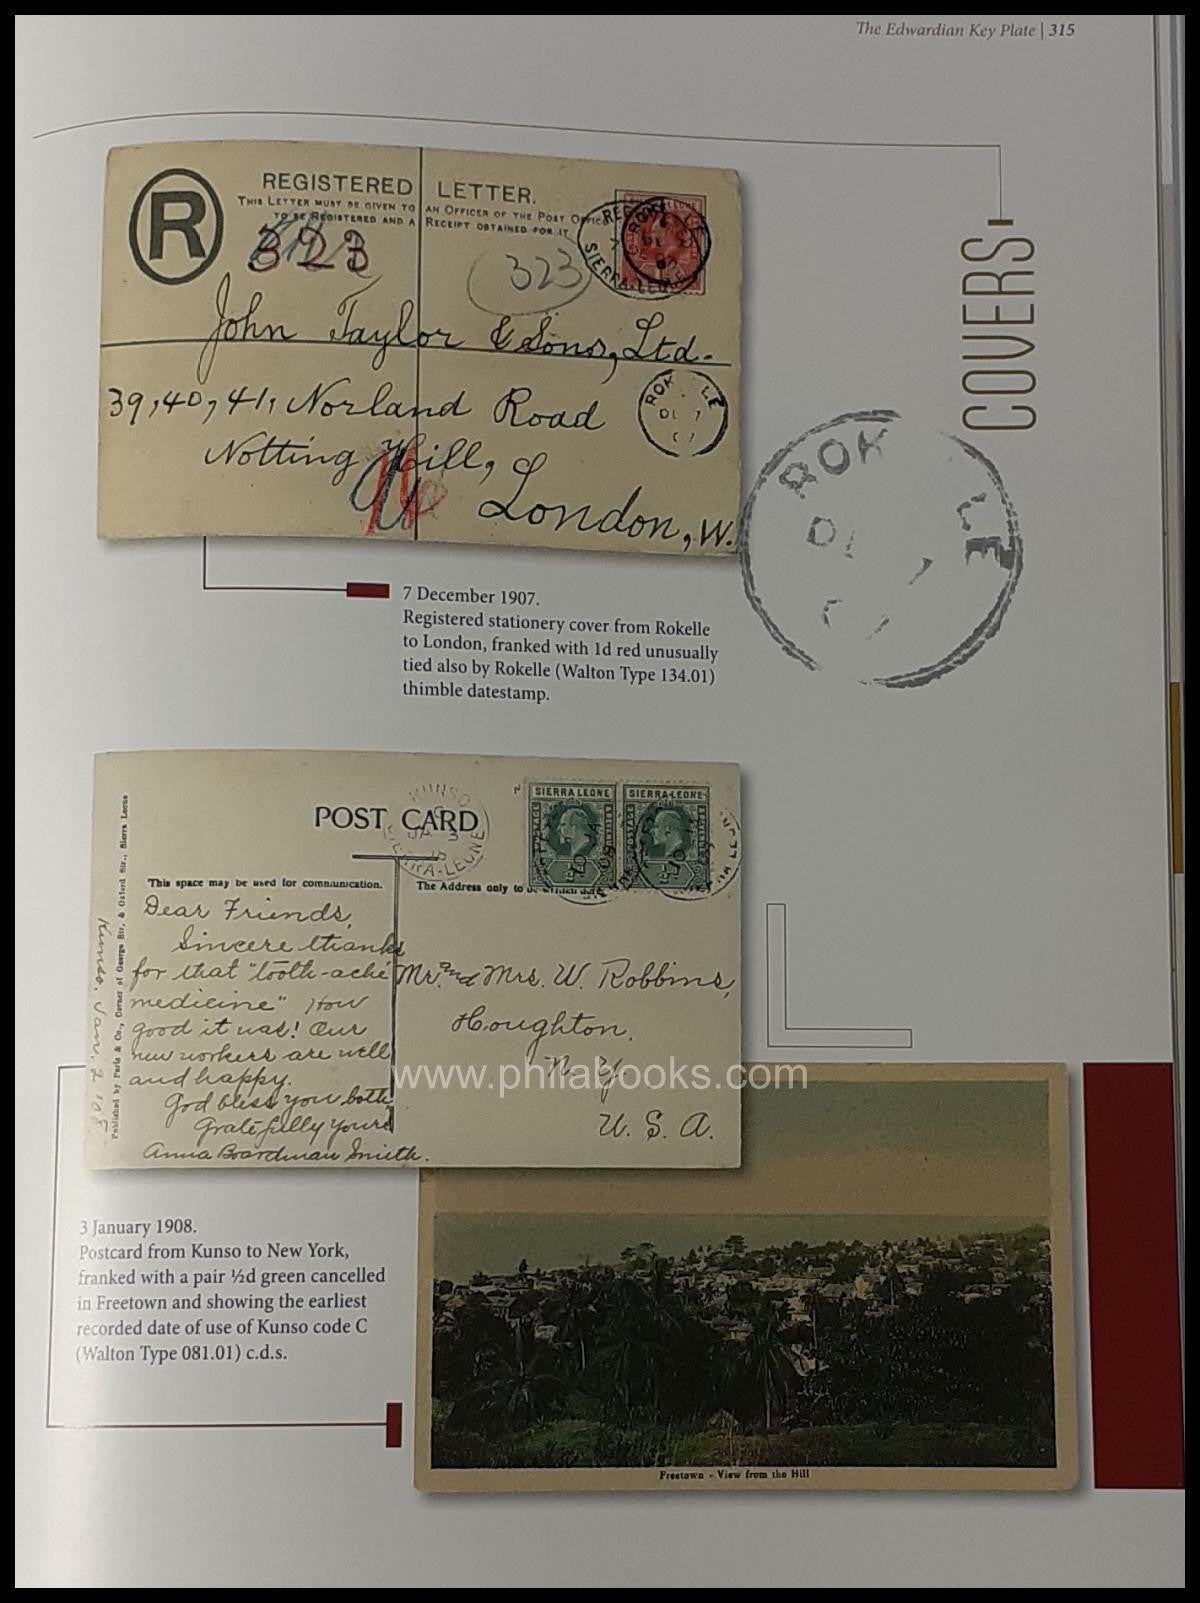 The Edwardian Key Plate | 315
COVERS
R
REGISTERED LETTER.
THIS LETTER MUST BE GIVEN TO AN OFFICER OF THE POST OFFICE
TO BE REGISTERED AND A RECEIPT OBTAINED FOR IT.
323
323
SIERRA-LEONE
John Taylor & Sons, Ltd.
39, 40, 41, Norland Road
Notting Hill,
London, W.
ROK LE
DE 7
07
ROK LE
7 December 1907.
Registered stationery cover from Rokelle
to London, franked with 1d red unusually
tied also by Rokelle (Walton Type 134.01)
thimble datestamp.
POST CARD
KUNSO
C
JA 3
SIERRA-LEONE
SIERRA LEONE
SIERRA LEONE
POSTAGE
POSTAGE
This space may be used for communication.
The Address only to be
Dear Friends,
Sincere thanks
for that "tooth-ache
medicine" How
good it was! Our
new workers are well
and happy.
God bless you both
Gratefully yours
Anna Boardman Smith.
Kunso, Jan. 2 '08
Published by Paris & Co., Corner of George Str., & Oxford Str., Sierra Leone
Mr. and Mrs. W. Robbins,
Houghton,
N. Y.
U. S. A.
www.philabooks.com
3 January 1908.
Postcard from Kunso to New York,
franked with a pair ½d green cancelled
in Freetown and showing the earliest
recorded date of use of Kunso code C
(Walton Type 081.01) c.d.s.
Freetown - View from the Hill